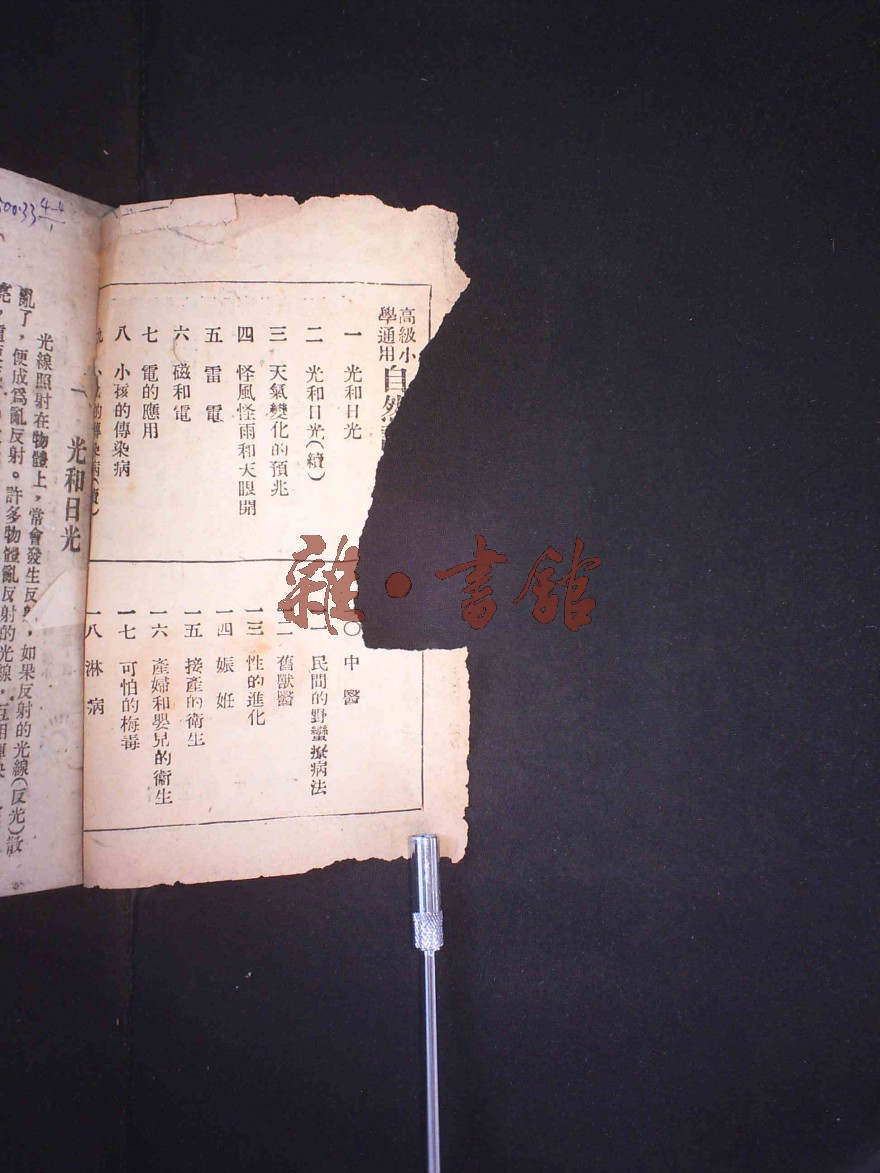 高級小
學通用
自然
一 光和日光
二 光和日光(續)
三 天氣變化的預兆
四 怪風怪雨和天眼開
五 雷電
六 磁和電
七 電的應用
八 小孩的傳染病
九 小孩的傳染病(續)
〇 中醫
一 民間的野蠻療病法
一二 舊獸醫
一三 性的進化
一四 娠妊
一五 接產的衛生
一六 產婦和嬰兒的衛生
一七 可怕的梅毒
一八 淋病
500.33 4-4
一 光和日光
光線照射在物體上,常會發生反射,如果反射的光線(反光)散
亂了,便成爲亂反射。許多物體亂反射的光線,互相
雜·書館